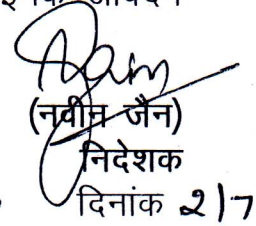 (नवीन जैन)
निदेशक
दिनांक 2/7